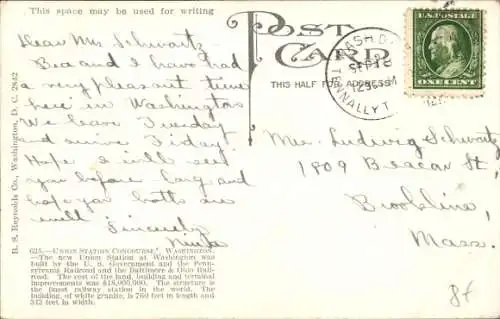 This space may be used for writing
POST CARD
THIS HALF FOR ADDRESS
U.S. POSTAGE
ONE CENT
WASH. D.
SEP 18
TENNALLYT
Dear Mr. Schwartz
Bea and I have had
a very pleasant time
here in Washington
We leave Tuesday
and arrive Friday.
Hope I will see
you before long and
hope you both are
well
Sincerely
Mr. Ludwig Schwartz
1809 Beacon St,
Brookline,
Mass.
B. S. Reynolds Co., Washington, D. C. 2842
UNION STATION CONCOURSE, WASHINGTON.
—The new Union Station at Washington was
built by the U. S. Government and the Penn-
sylvania Railroad and the Baltimore & Ohio Rail-
road. The cost of the land, building and terminal
improvements was $18,000,000. The structure is
the finest railway station in the world. The
building, of white granite, is 760 feet in length and
343 feet in width.